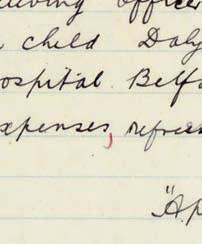 eiving officer
child Daly
ospital Belfa
xpenses, refres
"Ap